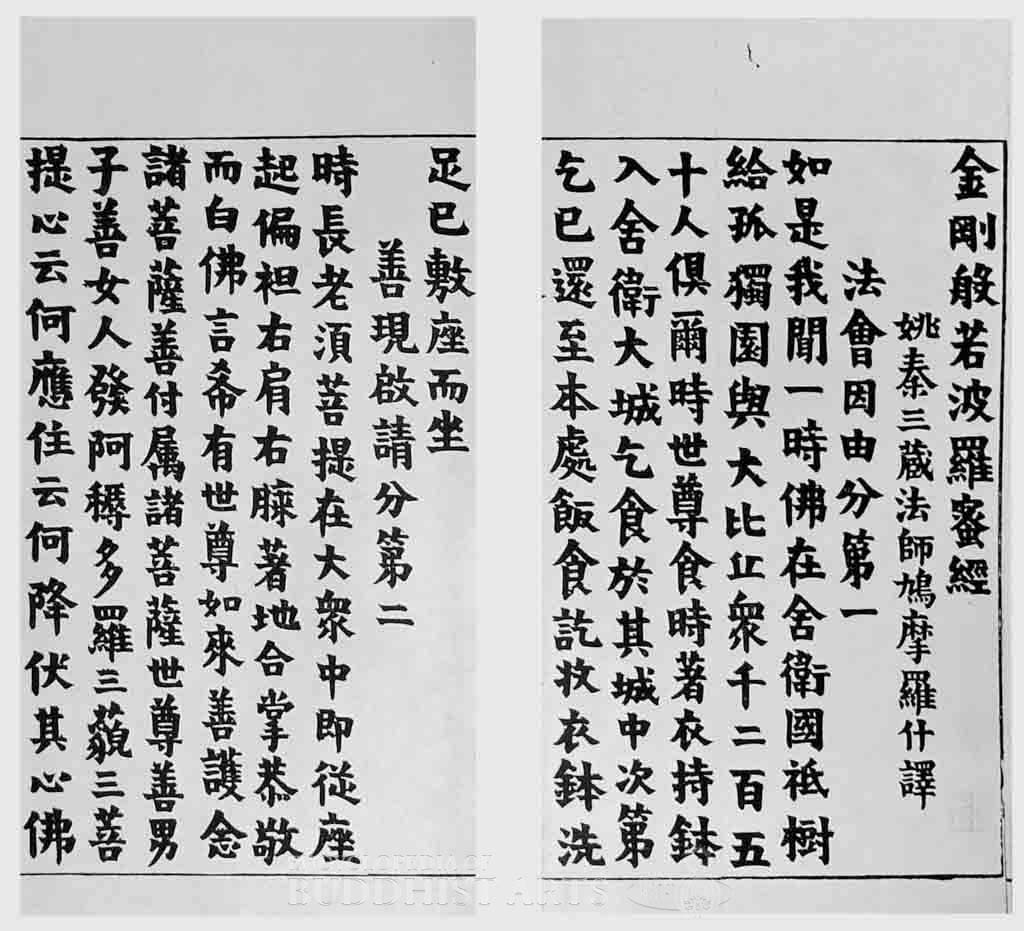 金剛般若波羅蜜經
姚秦三藏法師鳩摩羅什譯
法會因由分第一
如是我聞一時佛在舍衛國祇樹
給孤獨園與大比丘眾千二百五
十人俱爾時世尊食時著衣持鉢
入舍衛大城乞食於其城中次第
乞已還至本處飯食訖收衣鉢洗
足已敷座而坐
善現啟請分第二
時長老須菩提在大眾中即從座
起偏袒右肩右膝著地合掌恭敬
而白佛言希有世尊如來善護念
諸菩薩善付属諸菩薩世尊善男
子善女人發阿耨多羅三藐三菩
提心云何應住云何降伏其心佛
BUDDHIST ARTS